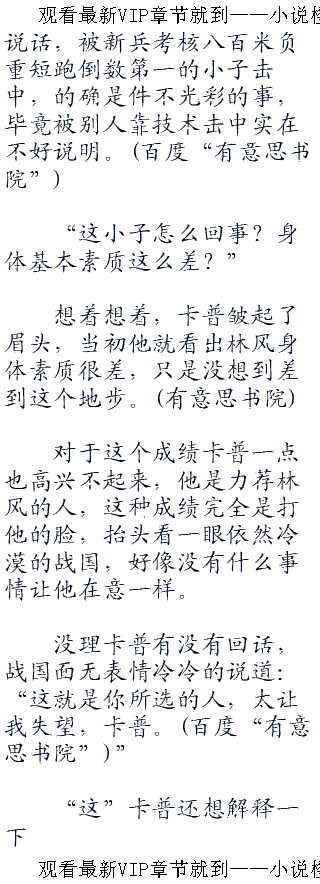 观看最新VIP章节就到——小说
说话，被新兵考核八百米负
重短跑倒数第一的小子击
中，的确是件不光彩的事，
毕竟被别人靠技术击中实在
不好说明。(百度“有意思书
院”)
“这小子怎么回事？身
体基本素质这么差？”
想着想着，卡普皱起了
眉头，当初他就看出林风身
体素质很差，只是没想到差
到这个地步。(有意思书院)
对于这个成绩卡普一点
也高兴不起来，他是力荐林
风的人，这种成绩完全是打
他的脸，抬头看一眼依然冷
漠的战国，好像没有什么事
情让他在意一样。
没理卡普有没有回话，
战国面无表情冷冷的说道：
“这就是你所选的人，太让
我失望，卡普。(百度“有意
思书院”)”
“这”卡普还想解释一
下
观看最新VIP章节就到——小说